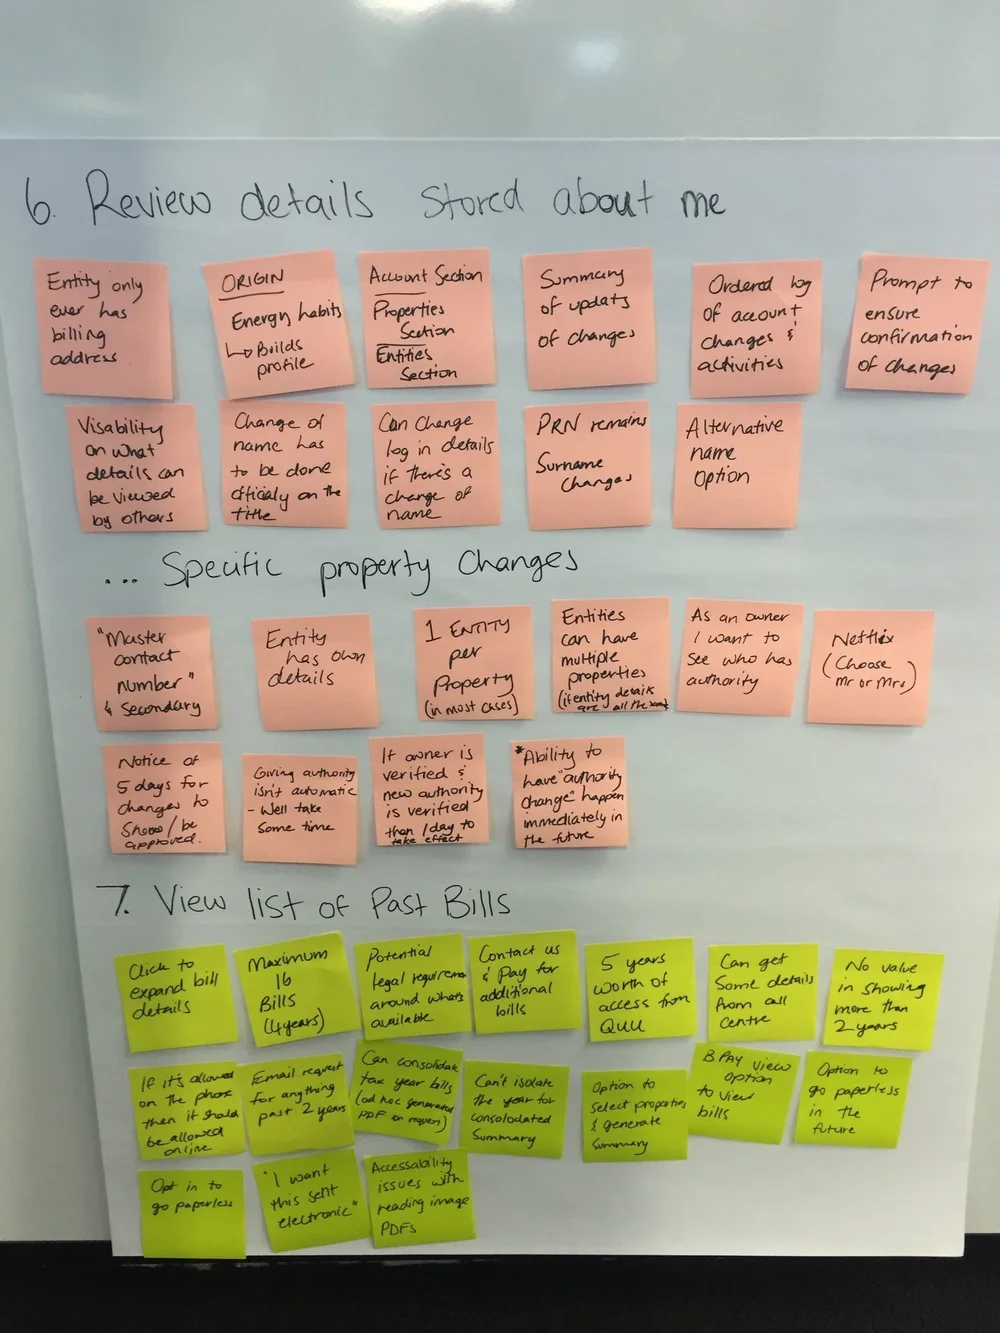 6. Review details stored about me
Entity only
ever has
billing
address
ORIGIN
Energy habits
↳ Builds
profile
Account Section
Properties
Section
Entities
Section
Summary
of updats
of changes
Ordered log
of account
changes &
activities
Prompt to
ensure
confirmation
of changes
Visability
on what
details can
be viewed
by others
Change of
name has
to be done
officialy on the
title
Can change
log in details
if there's a
change of
name
PRN remains
Surname
changes
Alternative
name
option
... Specific property changes
"Master
contact
number"
& secondary
Entity
has own
details
1 ENTITY
per
Property
(in most cases)
Entities
can have
multiple
properties
(if entity details
are all the same)
As an owner
I want to
see who has
authority
Netflix
(Choose
Mr or Mrs)
Notice of
5 days for
changes to
show/be
approved.
Giving authority
isn't automatic
- Well take
some time
If owner is
verified &
new authority
is verified
than 1 day to
take effect
*Ability to
have "authority
change" happen
immediately in
the future
7. View list of Past Bills
Click to
expand bill
details
Maximum
16
Bills
(4 years)
Potential
legal requiremen
around whats
available
Contact us
& pay for
additional
bills
5 years
worth of
access from
QUU
Can get
some details
from call
centre
No value
in showing
more than
2 years
If it's allowed
on the phone
then it should
be allowed
online
Email request
for anything
past 2 years
Can consolidate
tax year bills
(ad hoc generated
PDF on request)
Can't isolate
the year for
consolodated
summary
Option to
select properties
& generate
summary
BPAY view
option
to view
bills
Option to
go paperless
in the
future
Opt in to
go paperless
"I want
this sent
electronic"
Accessability
issues with
reading image
PDFs